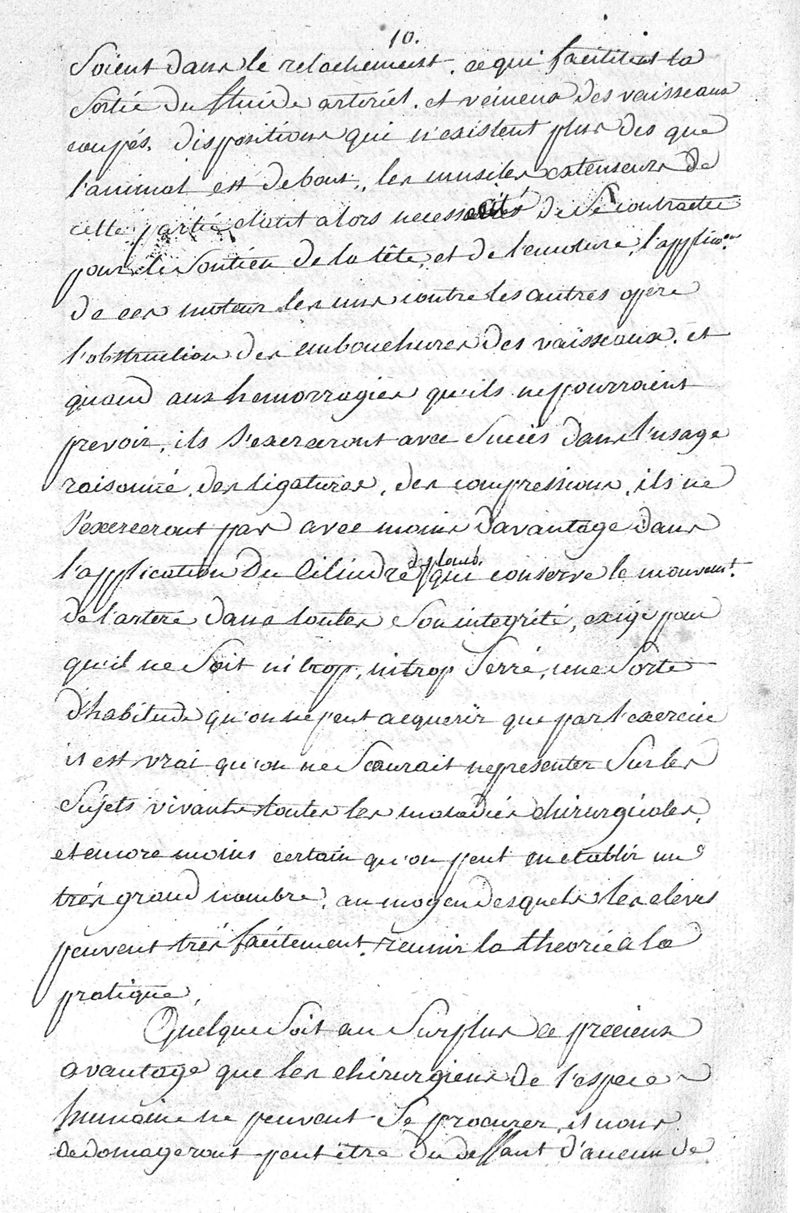 10.
Soient dans le relachement. ce qui facilitent la
Sortie du fluide arteriel. et veineux des vaisseaux
coupés. dispositions qui n'existent plus des que
l'animal est debout, les muscles extenseurs de
cette partie étant alors necessités de se contracter
pour le Soutien de la tête, et de l'encolure, l'applicon.
de ces moteur les uns contre les autres opere
l'obstruction des embouchures des vaisseaux. et
quand aux hemorragies qu'ils ne pourraient
prevoir, ils s'exerceront avec Succès dans l'usage
raisonné. des ligatures, des compressions, ils ne
s'exerceront pas avec moins d'avantage dans
l'application du Cilindre de plomb. qui conserve le mouvemt.
de l'artere dans toutes Son integrité, exige pour
qu'il ne Soit ni trop, ni trop Serré, une Sorte
d'habitude qu'on ne peut acquerir que par l'exercice
il est vrai qu'on ne Scaurait representer Sur les
Sujets vivants toutes les maladies chirurgicales,
et encore moins certain qu'on peut en etablir un
très grand nombre. au moyen desquels les eleves
peuvent très facilement reunir la theorie a la
pratique.
Quelque Soit au Surplus ce precieux
avantage que les chirurgiens de l'espece
humaine ne peuvent Se procurer, il nous
dedomageront peut être du deffaut d'aucun de